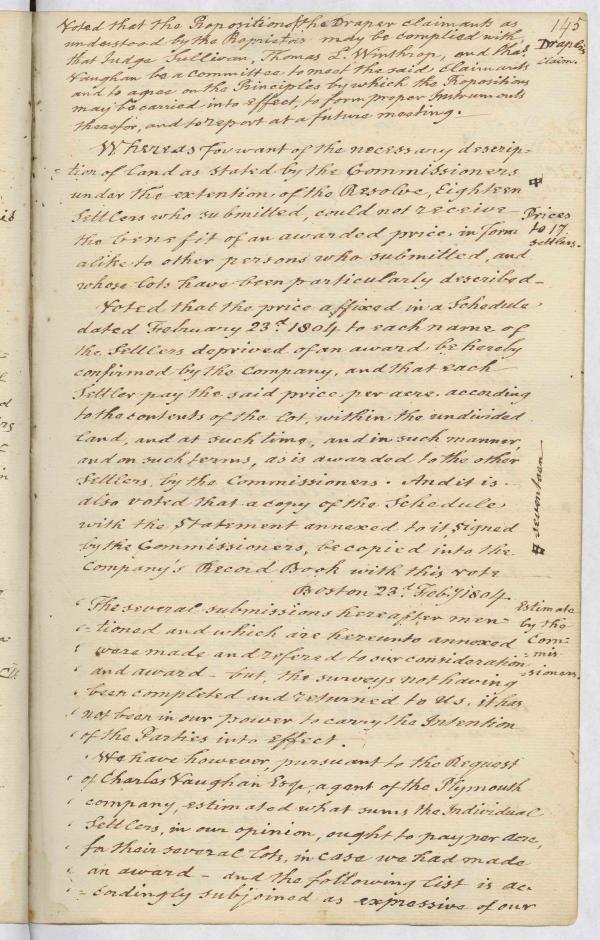 145
Voted that the Proposition of the Draper claimants as
understood by the Proprietors may be complied with,
that Judge Sullivan, Thomas L. Winthrop, and Chas.
Vaughan be a Committee to meet the said Claimants
and to agree on the Principles by which the Propositions
may be carried into effect, to form proper Instruments
therefor, and to report at a future meeting.
Draper
claim.
Whereas for want of the necessary descrip-
=tion of land as stated by the Commissioners
under the extention, of the Resolve, Eighteen #
Settlers who submitted, could not receive
the benefit of an awarded price, in form
alike to other persons who submitted, and
whose lots have been particularly described-
Prices
to 17
settlers.
Voted that the price affixed in a Schedule
dated February 23d. 1804 to each name of
the Settlers deprived of an award be hereby
confirmed by the Company, and that each
Settler pay the said price per acre, according
to the contents of the lot, within the undivided
land, and at such time, and in such manner,
and on such terms, as is awarded to the other
Settlers, by the Commissioners. And it is
also voted that a copy of the Schedule,
with the Statement annexed to it, signed
by the Commissioners, be copied into the
Company's Record Book with this vote
# seventeen
Boston 23d. Feby 1804.
The several submissions hereafter men-
=tioned and which are hereunto annexed
were made and refered to our consideration
and award - but, the surveys not having
been completed and returned to Us, it has
not been in our power to carry the Intention
of the Parties into Effect.
Estimate
by the
Com-
=mis-
=sioners.
We have however, pursuant to the Request
of Charles Vaughan Esqr, agent of the Plymouth
company, estimated what sums the Individual
Settlers, in our opinion, ought to pay per Acre,
for their several lots, in case we had made
an award - and the following list is ac-
=cordingly subjoined as expressive of our